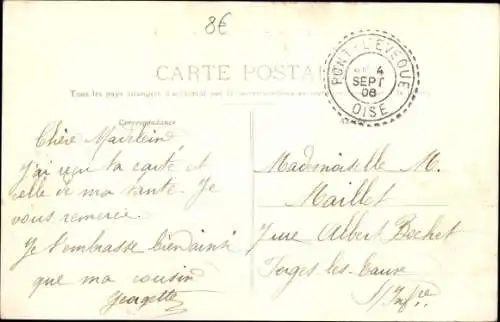 8€
CARTE POSTALE
Tous les pays étrangers
Correspondance
PONT-L'EVEQUE
4
SEPT
08
OISE
Chère Madeleine
J'ai reçu ta carte et
celle de ma tante. Je
vous remercie.
Je t'embrasse bien ainsi
que ma cousine
Georgette
Mademoiselle M.
Maillet
rue Albert Bochet
Forges les Eaux
S/Infre.